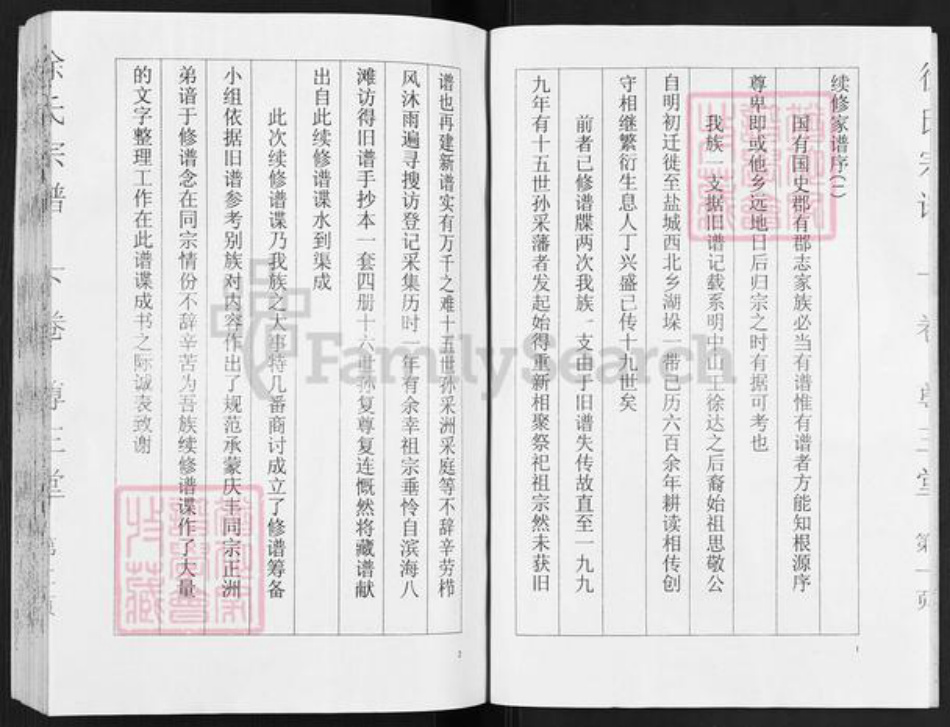 续修家谱序(一)
国有国史郡有郡志家族必当有谱惟有谱者方能知根源序
尊卑即或他乡远地日后归宗之时有据可考也
我族一支据旧谱记载系明中山王徐达之后裔始祖思敬公
自明初迁徙至盐城西北乡湖垛一带已历六百余年耕读相传创
守相继繁衍生息人丁兴盛已传十九世矣
前者已修谱牒两次我族一支由于旧谱失传故直至一九九
九年有十五世孙采藩者发起始得重新相聚祭祀祖宗然未获旧
1
谱也再建新谱实有万千之难十五世孙采洲采庭等不辞辛劳栉
风沐雨遍寻搜访登记采集历时一年有余幸祖宗垂怜自滨海八
滩访得旧谱手抄本一套四册十六世孙复尊复连慨然将藏谱献
出自此续修谱谍水到渠成
此次续修谱谍乃我族之大事特几番商讨成立了修谱筹备
小组依据旧谱参考别族对内容作出了规范承蒙庆丰同宗正洲
弟谙于修谱念在同宗情份不辞辛苦为吾族续修谱谍作了大量
的文字整理工作在此谱谍成书之际诚表致谢
2
徐氏宗谱 卷 尊三堂 第一页
氏宗谱 卷 尊三堂 第 页
FamilySearch